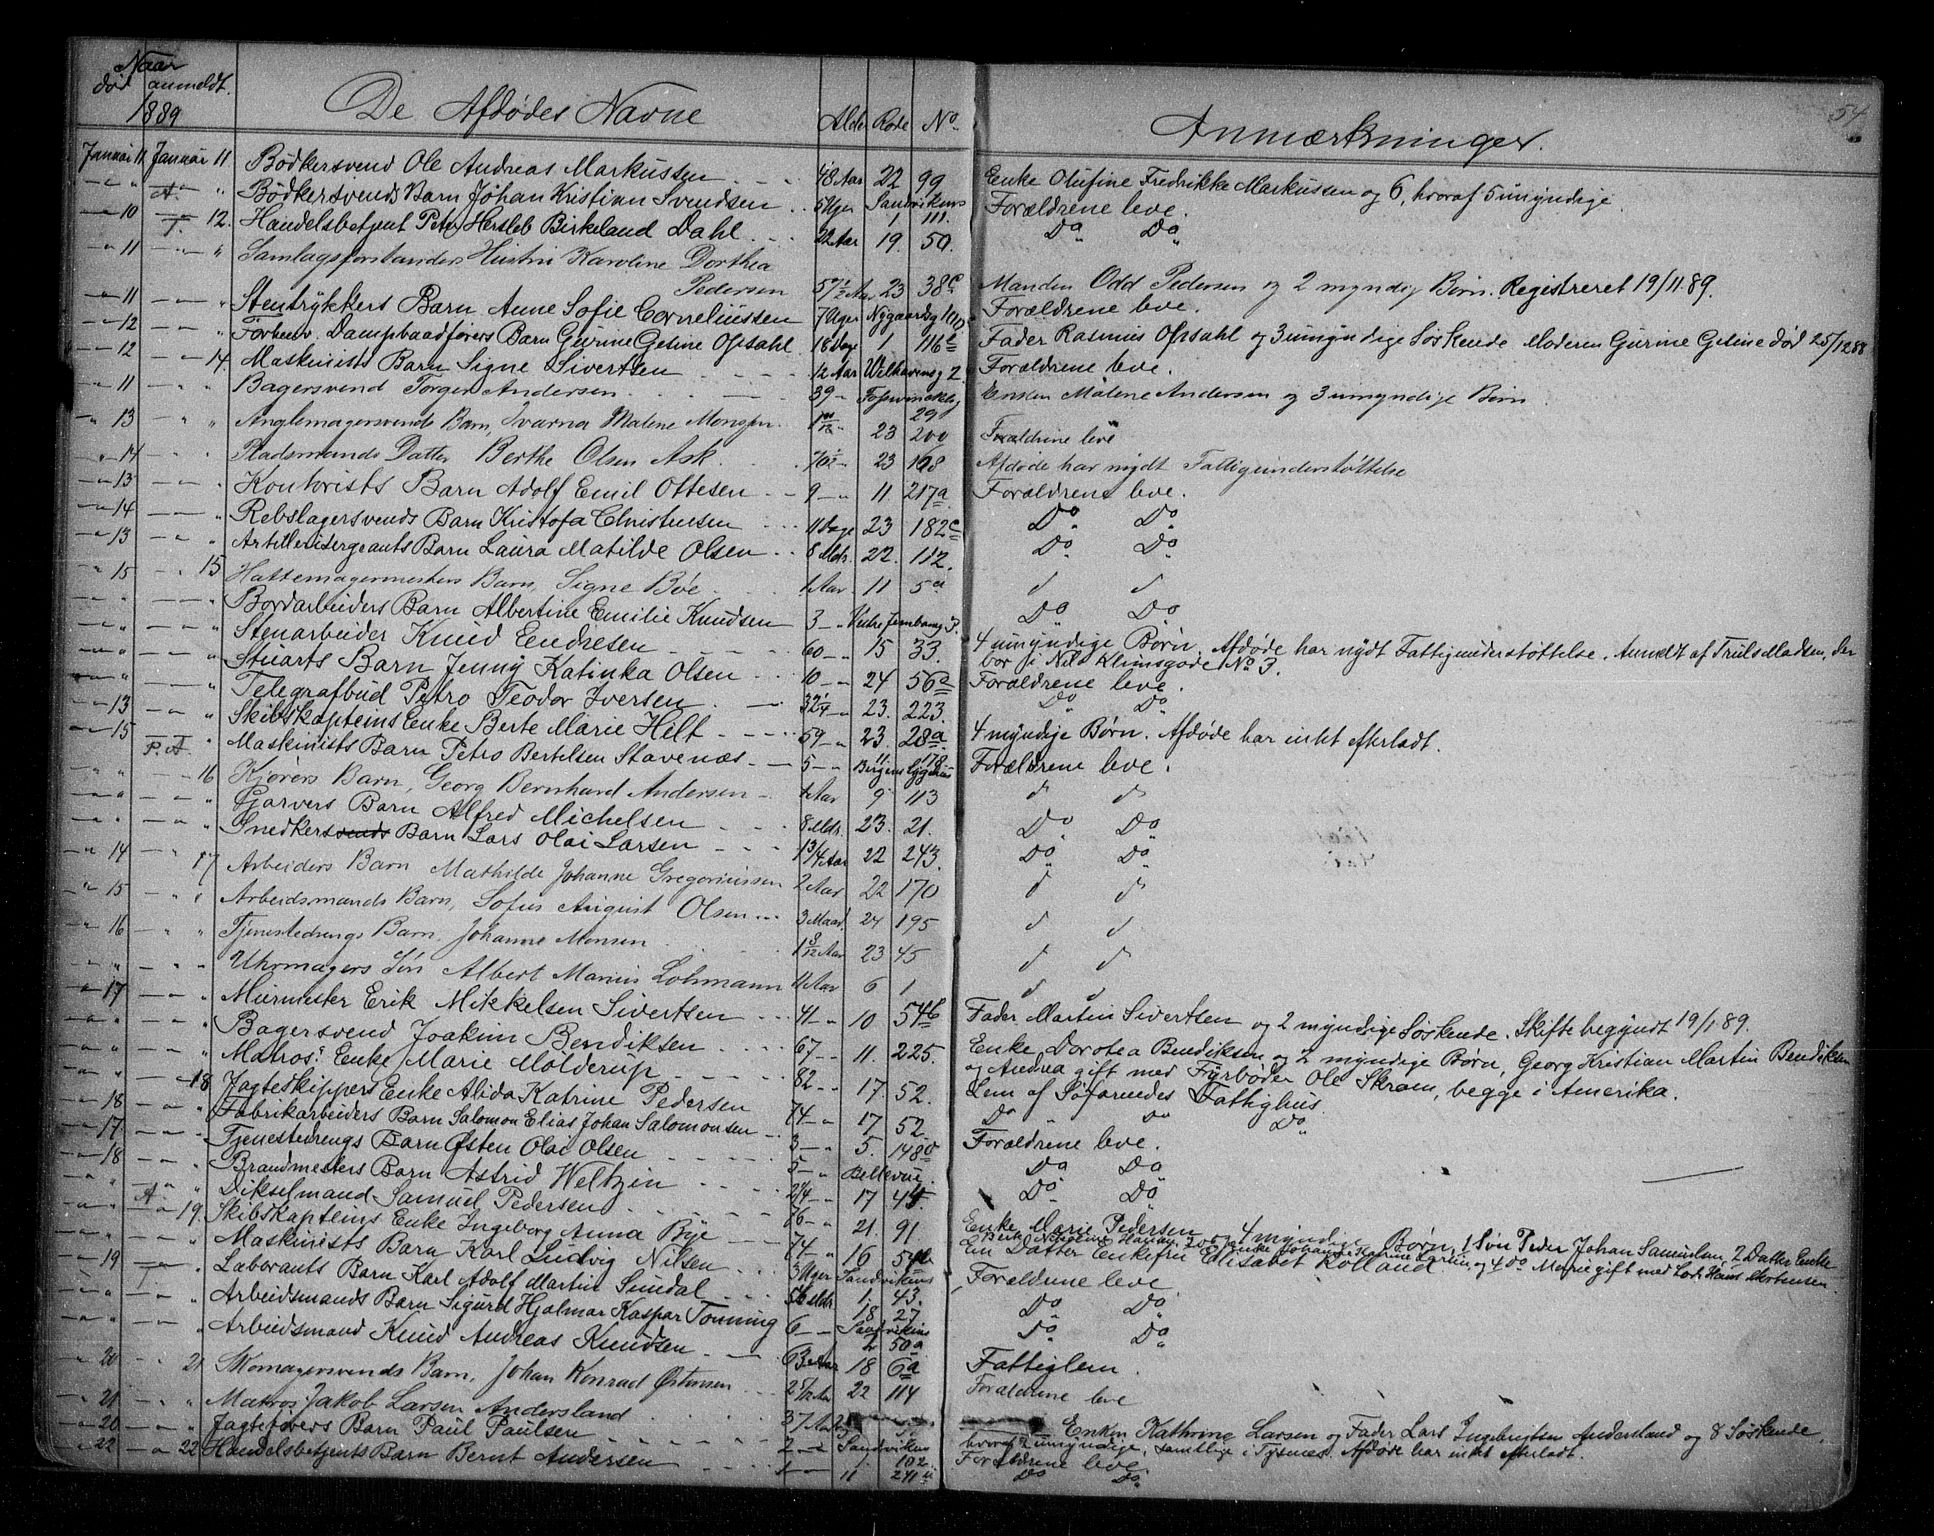 54
Naar
død anmeldt. De Afdødes Navne Alder Rode No. Anmærkninger.
1889
Januar 11 Januar 11 Bødkersvend Ole Andreas Markussen 48 Aar 22 99 Enke Olufine Fredrikke Markussen og 6, hvoraf 5 umyndige
A. Bødkersvends Barn Johan Kristian Svendsen 5 Uger Sandvikens 1 111. Forældrene leve.
10 T. 12. Handelsbetjent Peter Hersleb Birkeland Dahl 22 Aar 19. 50. Do Do
11 Samlagsforstanders Hustru Karoline Dorthea
Pedersen 57 1/2 Aar 23 38c Manden Odd Pedersen og 2 myndig Børn. Registreret 19/11 89.
11 Stentrykkers Barn Anne Sofie Corneliussen 7 Uger Nygaardsg Forældrene leve.
12 Forhenv. Dampbaadførers Barn Gurine Gesine Opsahl 18 Dage 1 116 Fader Rasmus Opsahl og 3 umyndige Søskende Moderen Gurine Gesine død 25/12 88
12 14. Maskinists Barn Signe Sivertsen 12 Aar Welhavensg 2. Forældrene leve.
11 Bagersvend Torger Andersen 39 29 Enken Malene Andersen og 3 umyndige Børn
13 Anglemagersvends Barn, Ivarna Malene Monsen 23 200 Forældrene leve
14 Pladsmands Datter Berthe Olsen Ask 70 1/2 23 168 Afdøde har nydt Fattigunderstøttelse
13 Kontorists Barn Adolf Emil Ottesen 9 11 217a Forældrene leve.
14 Rebslagersvends Barn Kristofa Christensen 11 Dage 23 182c Do Do
13 Artillerisergeants Barn Laura Matilde Olsen 8 Mdr. 22. 112. Do Do
15 15 Hattemagermesters Barn, Signe Bøe 1 Aar 11 5a
Bordarbeiders Barn Albertine Emilie Knudsen 3 Vestre 3. Do Do
Stenarbeider Knud Endresen 60 15 33. 4 umyndige Børn. Afdøde har nydt Fattigunderstøttelse. Anmdt af Truls Madsen, der
bor i Nils Klimsgade No 3.
Stuarts Barn Jenny Katinka Olsen 10 24 56a Forældrene leve.
Telegrafbud Petro Teodor Iversen 32 1/4 23. 223. Do Do
13 Skibskapteins Enke Berte Marie Helt 59 23. 28a. 4 myndige Børn. Afdøde har intet efterladt.
15 P. A. Maskinists Barn Petro Bertelsen Stavenæs 5 11 178 Bergens Sygehus Forældrene leve.
16 Kjørers Barn, Georg Bernhard Andersen Aar 9 113
Garvers Barn Alfred Michelsen 8 Mdr. 23. 21. Do Do
Snedkersvends Barn Lars Olai Larsen 1 3/4 Aar 22 243. Do Do
14 17 Arbeiders Barn Mathilde Johanne Gregoriussen 2 Aar 22 170
15 Arbeidsmands Barn, Sofus August Olsen 3 Maad. 24 195
16 Tjenestedrengs Barn, Johanne Monsen 1 8/12 Aar 23 45
Uhrmagers Søn Albert Marius Lohmann 11 Aar 6 1
17 Murmester Erik Mikkelsen Sivertsen 41 10 54b Fader Martin Sivertsen og 2 myndige Søskende. Skifte begyndt 19/1 89.
Bagersvend Joakim Bendiksen 67 11. 225. Enke Dorotea Bendiksen og 2 myndige Børn, Georg Kristian Martin Bendiksen
og Andrea gift med Fyrbøder Ole Skram, begge i Amerika.
Matros' Enke Marie Molderup 82 17. 52. Lem af Søfarendes Fattighus.
18 Jagteskippers Enke Alida Katrine Pedersen 74 17 52. Do Do Do
18 Fabrikarbeiders Barn Salomon Elias Johan Salomonsen 3 5. 148 Forældrene leve.
17 Tjenestedrengs Barn Østen Olai Olsen 5 Bellevue. Do Do
18 Brandmesters Barn Astrid Weltzin 2 1/4 17 Do Do
A Dikselmand Samuel Pedersen 76 21. 91 Enke Marie Pedersen 4 myndige Børn, 1 Søn Peder Johan Samuelsen, 2 Datter Enke
19. Skibskapteins Enke Ingeborg Anna Bye 74 16 En Datter Enkefru Elisabet Rolland Marie gift med Hans Mortensen
Maskinists Barn Karl Ludvig Nilsen 3 Uger Sandvikens 1. 43. Forældrene leve
19 T Laborants Barn Karl Adolf Martin Sundal Mdr. 18 27 Do Do
Arbeidsmands Barn Sigurd Hjalmar Kaspar Tonning 6 Sandvikens 2 50a Do Do
Arbeidsmand Knud Andreas Knudsen 63 Aar 18 6a Fattiglem.
20 21 Skomagersvends Barn, Johan Konrad Østensen 2 22 114 Forældrene leve
21 Matros Jakob Larsen Andersland 37 Aar Enken Kathrine Larsen og Fader Lars Ingebrigtsen Andersland og 8 Søskende,
hvoraf 2 umyndige, samtlige i Tysnes. Afdøde har intet efterladt.
20 Jagteførers Barn Paul Paulsen 2 Sandviken 1. 102. Forældrene leve.
22 22 Handelsbetjents Barn Bernt Andersen 1 11 241 Do Do